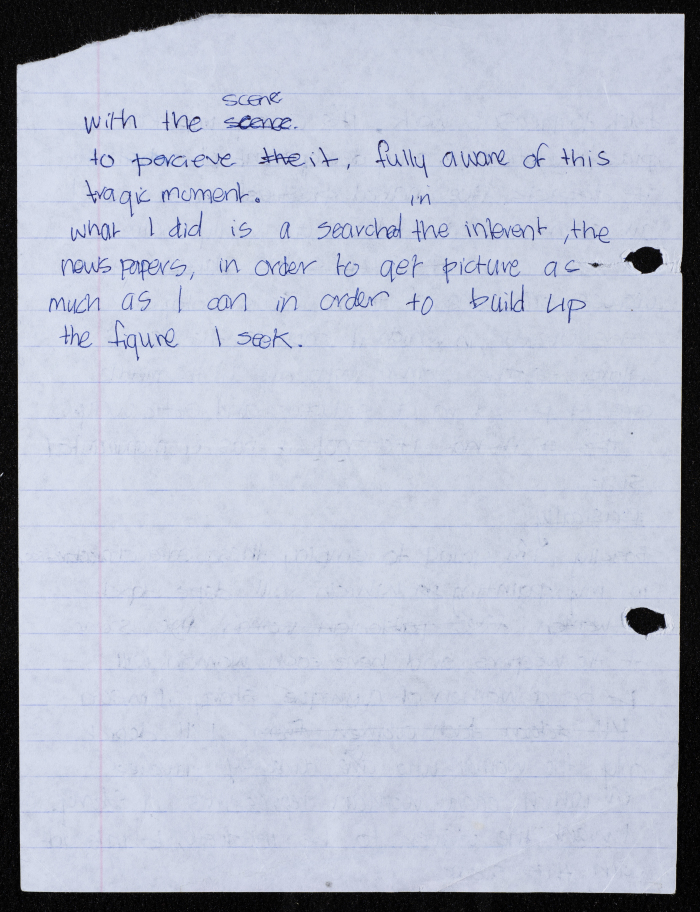 scene
with the scence.
to percieve the it, fully aware of this
tragic moment.
in
what I did is a searched the intervent, the
newspapers, in order to get picture as
much as I can in order to build up
the figure I seek.